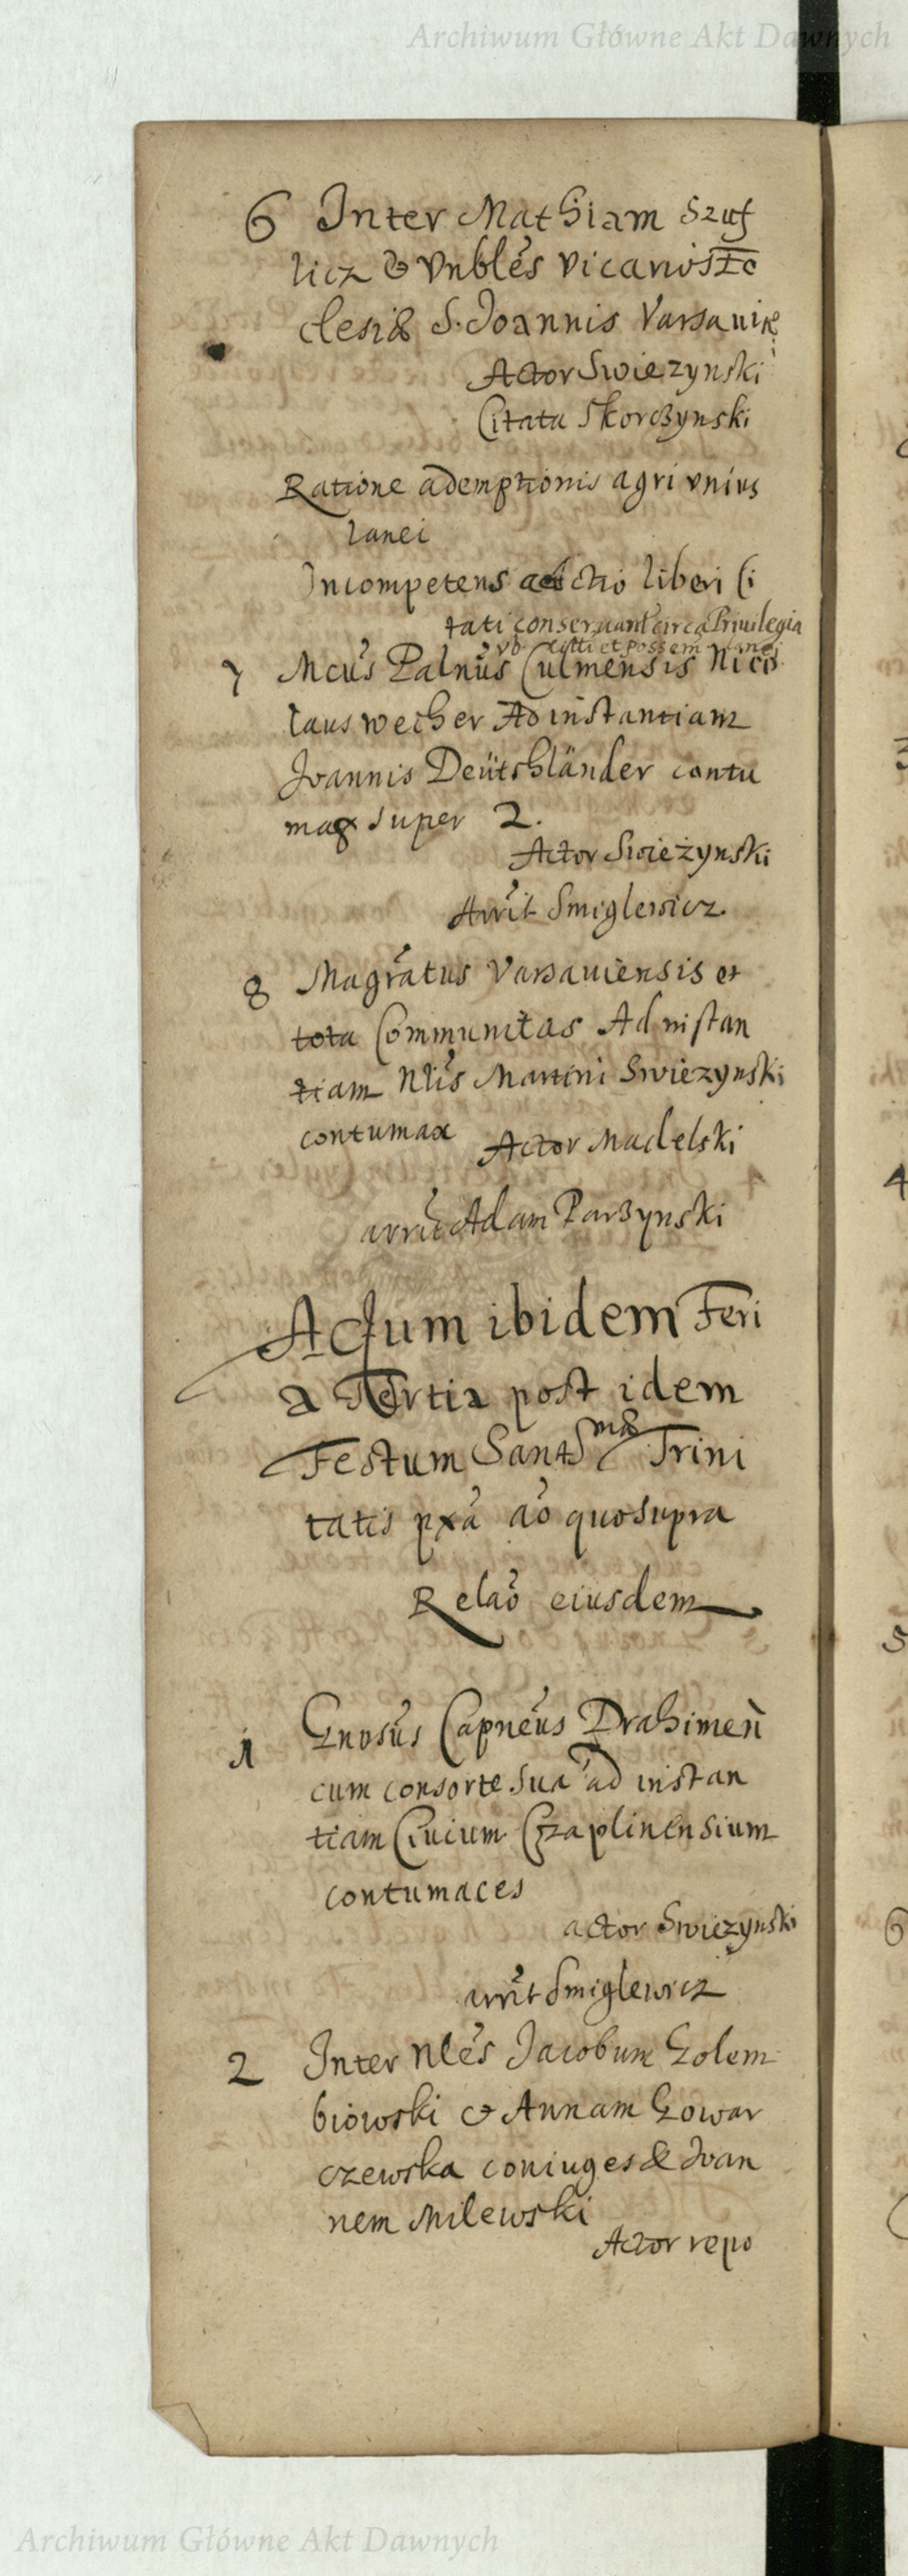 Archiwum Główne Akt Dawnych
6 Inter Mathiam Szuf
licz & Vnbles vicarios Ec
clesiæ S. Joannis Varsauie
Actor Swiezynski
Citata Skorczynski
Ratione ademptionis agri vnius
lanei
Incompetens actio liberi Ci
tati conseruant circa Priuilegia
et possem lanej
7 Mcus Palnus Culmensis Nico
laus weiher Ad instantiam
Joannis Deütshländer contu
max super 2.
Actor Swieżynski
Arrit Smiglewicz
8 Magratus Varsauiensis et
tota Communitas Ad instan
tiam Nlis Martini Swiezynski
contumax Actor Madelski
arrit Adam Parzynski
Actum ibidem Feri
a Tertia post idem
Festum Sanctsmæ Trini
tatis pxa ao quo supra
Relao eiusdem
1 Gnosus Capneus Drahimen
cum consorte sua ad instan
tiam Ciuium Czaplinensium
contumaces
actor Swiezynski
arrit Smiglewicz
2 Inter Nles Jacobum Golem
biowski & Annam Gowar
czewska coniuges & Joan
nem Milewski
Actor repo
3
4
5
6
Archiwum Główne Akt Dawnych